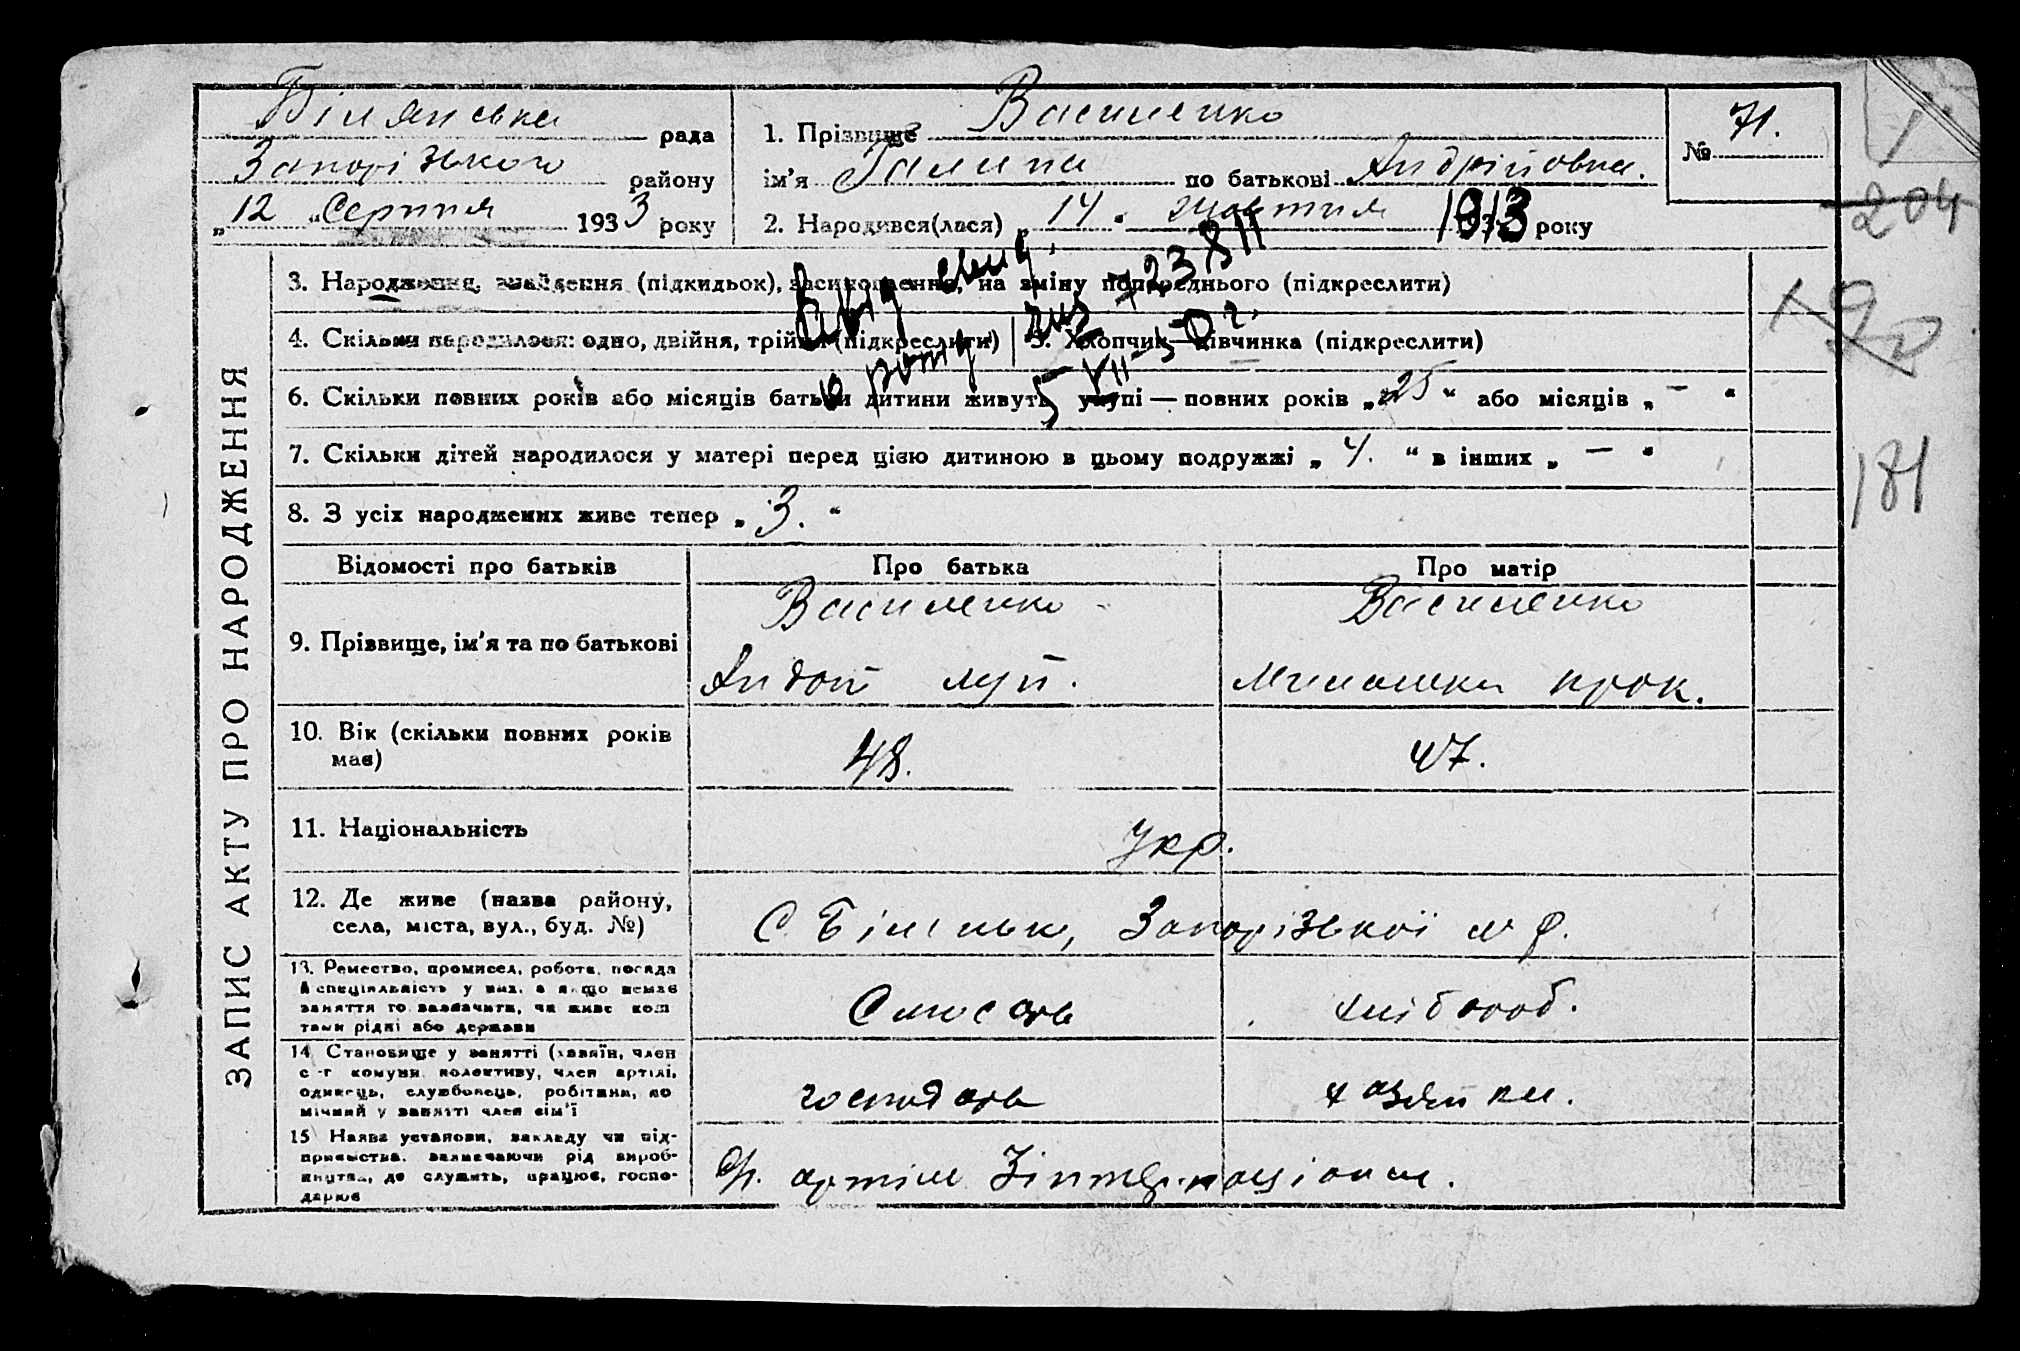 Білянська рада
Запорізького району
„12 “ Серпня 1933 року
1. Прізвище Василенко
ім'я Галина по батькові Андрійовна.
2. Народився(лася) „ 14 “ жовтня 1913 року
№ 71.
1
204
190
181
ЗАПИС АКТУ ПРО НАРОДЖЕННЯ
3. Народження, знайдення (підкидьок), засиновлення, на зміну попереднього (підкреслити)
4. Скільки народилося: одно, двійня, трійня (підкреслити) 5. Хлопчик—дівчинка (підкреслити)
6. Скільки повних років або місяців батьки дитини живуть укупі — повних років „25“ або місяців „ — “
7. Скільки дітей народилося у матері перед цією дитиною в цьому подружжі „ 4. “ в інших „ — “
8. З усіх народжених живе тепер „ 3. “
Відомості про батьків Про батька Про матір
9. Прізвище, ім'я та по батькові
Василенко Василенко
прок.
10. Вік (скільки повних років має)
48. 47.
11. Національність
Укр.
12. Де живе (назва району, села, міста, вул., буд. №)
С Біленьке, Запорізької
13. Ремество, промисел, робота, посада й спеціяльність у них, а якщо немає заняття то зазначити, чи живе коштами рідні або держави
Слюсарь хлібороб.
14 Становище у занятті (хазяїн, член с-г комуни колективу, член артілі, одинець, службовець, робітник, помічний у занятті член сім'ї
господарь хазяйка.
15 Назва установи, закладу чи підприємства, зазначаючи рід виробництва, де служить, працює, господарює
артіль Інтернаціонал.